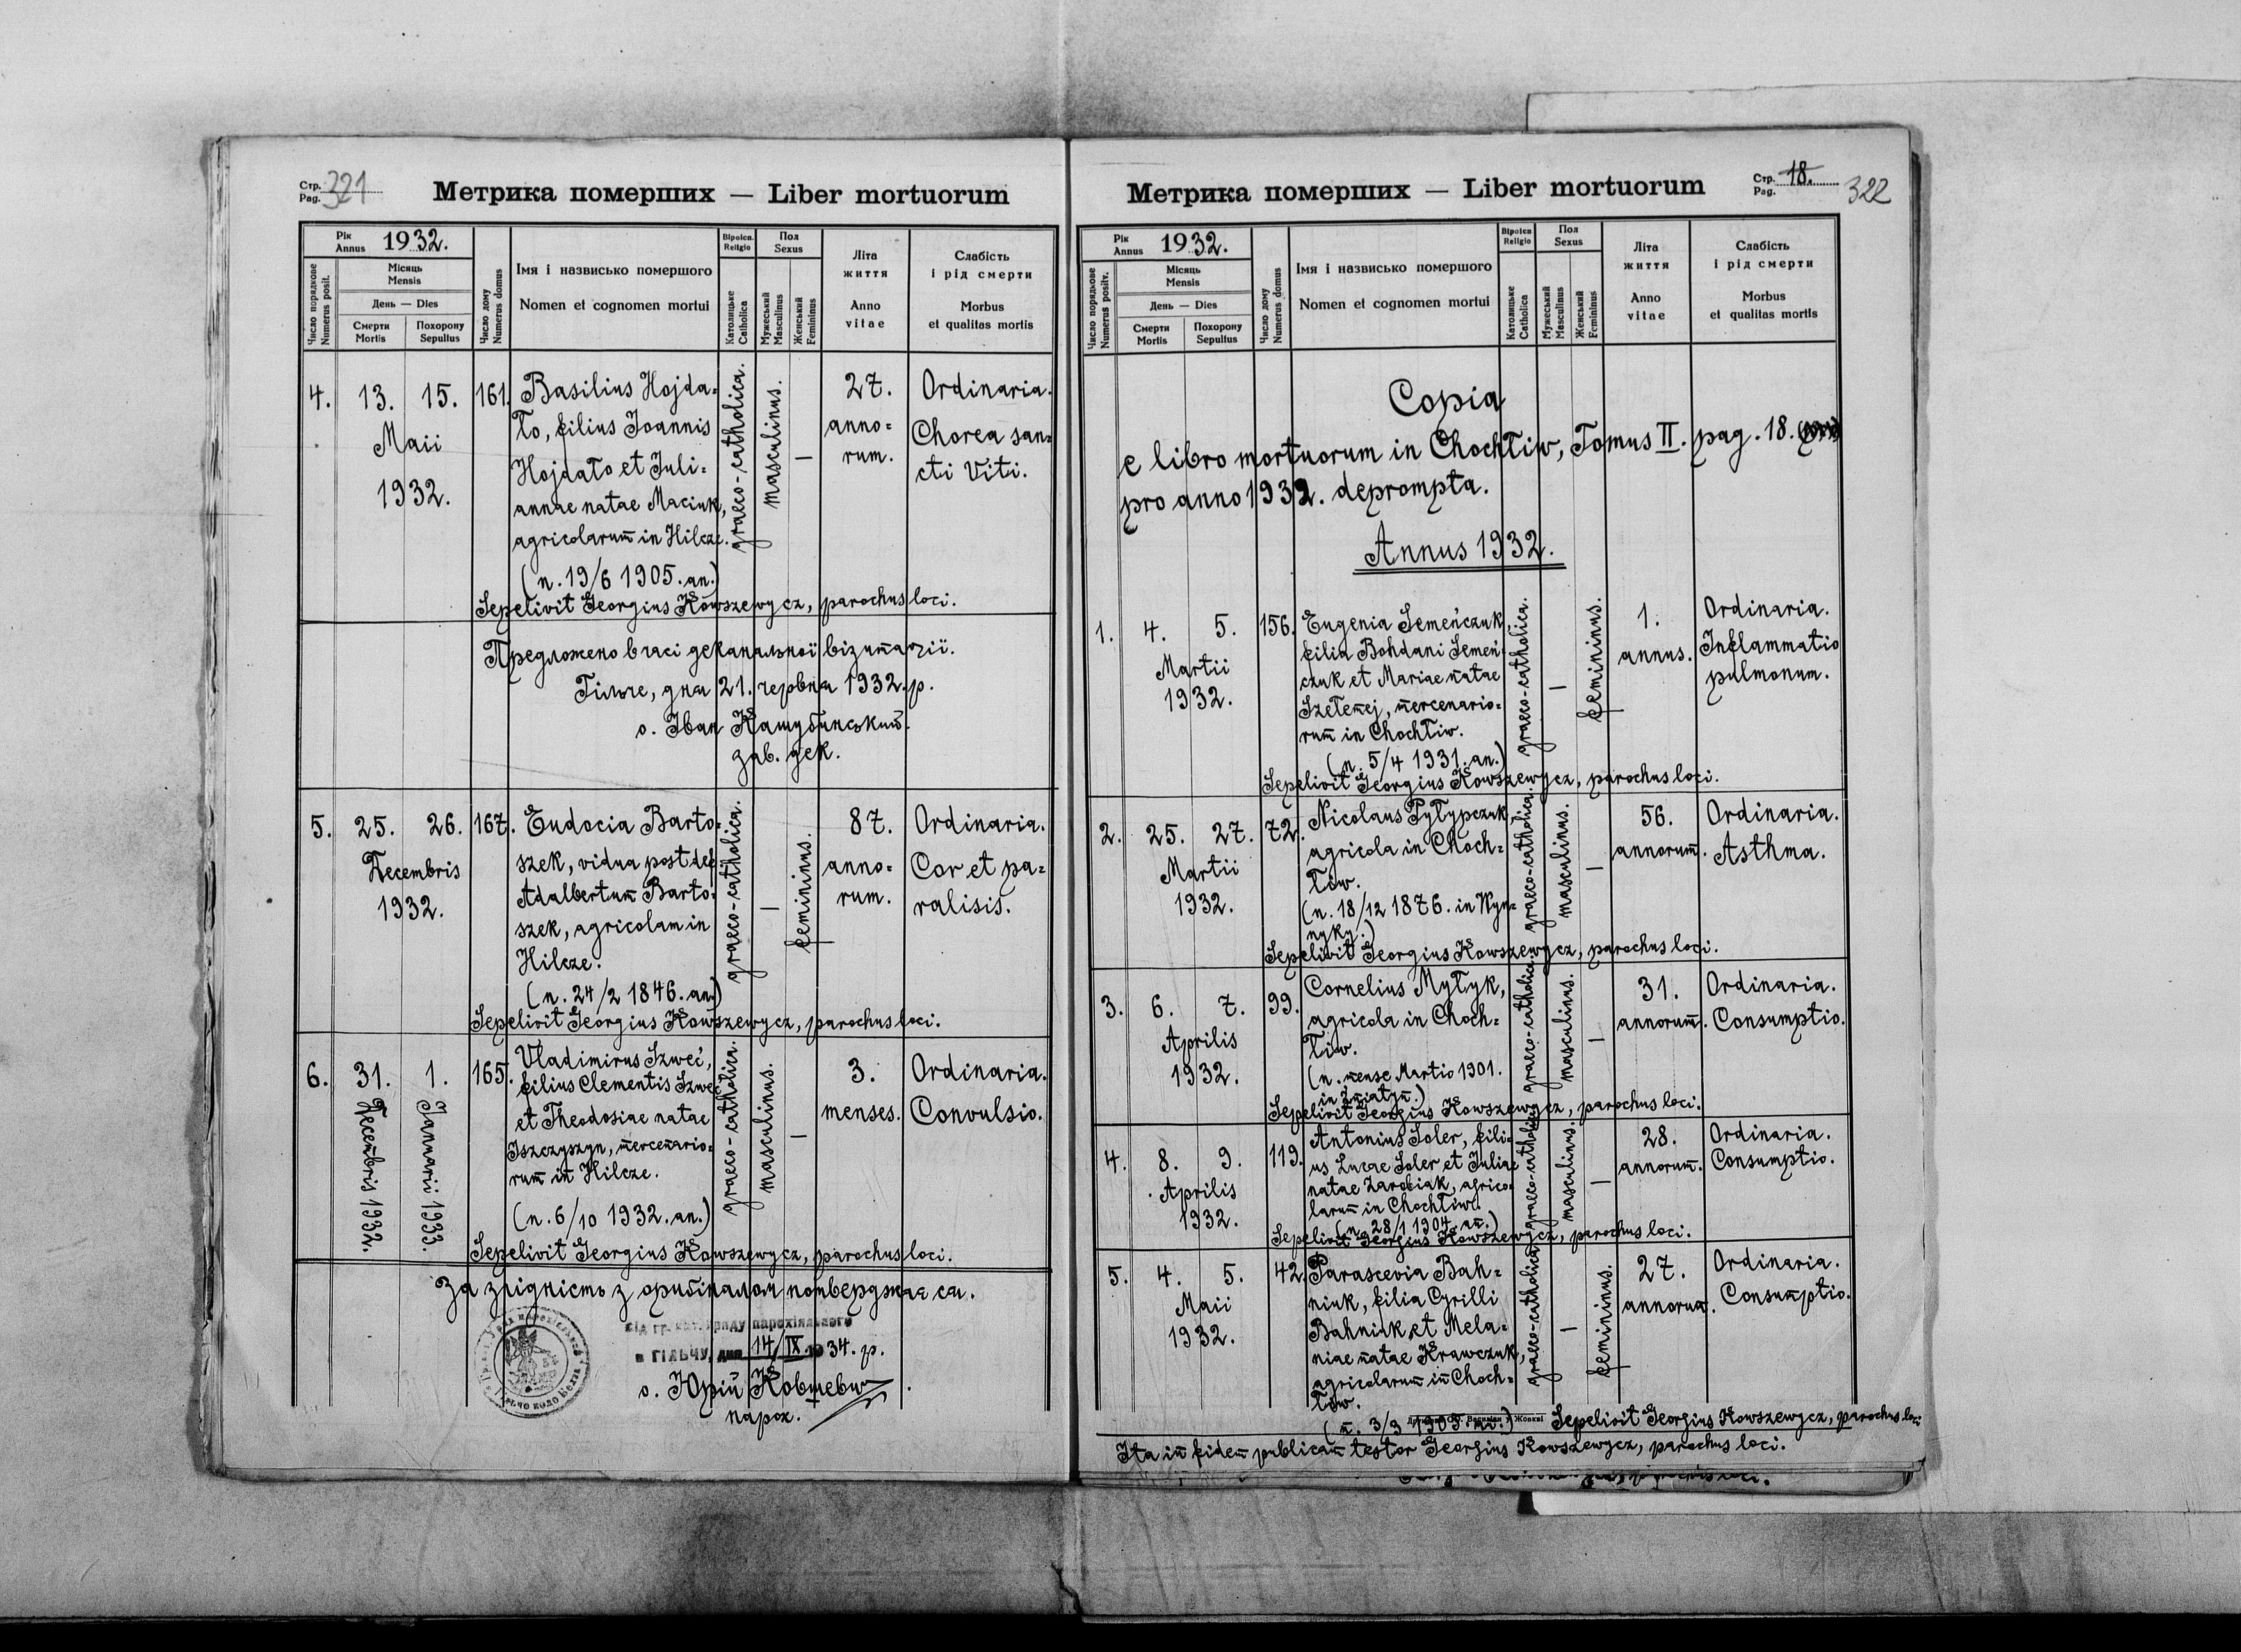 Стр. Pag. 321
Метрика померших — Liber mortuorum
Рік Annus 1932.
Місяць Mensis
День — Dies
Смерти Mortis
Похорону Sepultus
Число порядкове Numerus posit.
Число дому Numerus domus
Імя і назвисько помершого
Nomen et cognomen mortui
Віроісп. Religio
Католицьке Catholica
Пол Sexus
Мужеський Masculinus
Женський Femininus
Літа життя
Anno vitae
Слабість і рід смерти
Morbus et qualitas mortis
4. 13. 15. 161. Basilius Hojda= graeco-catholica. masculinus. — 27. Ordinaria.
Maii ło, filius Joannis anno= Chorea san=
1932. Hojdało et Juli= rum. cti Viti.
annae natae Maciuk,
agricolarum in Hilcze.
(n. 19/6 1905. an.)
Sepelivit Georgius Kowszewycz, parochus loci.
Предложено в часі деканальної візитації.
Гільче, дня 21. червня 1932. р.
о. Іван
зав. дек.
5. 25. 26. 167. Eudocia Barto= graeco-catholica. — femininus. 87. Ordinaria.
Decembris szek, vidua post def. anno= Cor et pa=
1932. Adalbertum Barto= rum. ralisis.
szek, agricolam in
Hilcze.
(n. 24/2 1846. an.)
Sepelivit Georgius Kowszewycz, parochus loci.
6. 31. Decembris 1932. 1. Januarii 1933. 165. Vladimirus Szweć, graeco-catholica. masculinus. — 3. Ordinaria.
filius Clementis Szweć menses. Convulsio.
et Theodosiae natae
Iszczyszyn, mercenario=
rum in Hilcze.
(n. 6/10 1932. an.)
Sepelivit Georgius Kowszewycz, parochus loci.
За зрідність з оригіналом потверджає ся.
Від гр. кат. Уряду парохіяльного
в ГІЛЬЧУ, дня 14/IX 1934. р.
о. Юрій Ковшевич
парох.
Стр. Pag. 18. 322
Метрика померших — Liber mortuorum
Рік Annus 1932.
Місяць Mensis
День — Dies
Смерти Mortis
Похорону Sepultus
Число порядкове Numerus positv.
Число дому Numerus domus
Імя і назвисько помершого
Nomen et cognomen mortui
Віроісп Religio
Католицьке Catholica
Пол Sexus
Мужеський Masculinus
Женський Femininus
Літа життя
Anno vitae
Слабість і рід смерти
Morbus et qualitas mortis
Copia
e libro mortuorum in Chochłiw, Tomus II. pag. 18.
pro anno 1932. deprompta.
Annus 1932.
1. 4. 5. 156. Eugenia Semeńczuk, graeco-catholica. — femininus. 1. Ordinaria.
Martii filia Bohdani Semeń= annus. Inflammatio
1932. czuk et Mariae natae pulmonum.
Szełemej, mercenario=
rum in Chochłiw.
(n. 5/4 1931. an.)
Sepelivit Georgius Kowszewycz, parochus loci.
2. 25. 27. 72. Nicolaus Pyłypczuk, graeco-catholica. masculinus. — 56. Ordinaria.
Martii agricola in Choch= annorum. Asthma.
1932. łiw.
(n. 18/12 1876. in Wyn=
nyky.)
Sepelivit Georgius Kowszewycz, parochus loci.
3. 6. 7. 99. Cornelius Myłyk, graeco-catholica. masculinus. — 31. Ordinaria.
Aprilis agricola in Choch= annorum. Consumptio.
1932. łiw.
(n. mense Martio 1901.
in
Sepelivit Georgius Kowszewycz, parochus loci.
4. 8. 9. 119. Antonius Soler, fili= graeco-catholica masculinus. — 28. Ordinaria.
Aprilis us Lucae Soler et Juliae annorum. Consumptio.
1932. natae agrico=
larum in Chochłiw.
(n. 28/1 1904. an.)
Sepelivit Georgius Kowszewycz, parochus loci.
5. 4. 5. 42. Parascevia Bah= graeco-catholica — femininus. 27. Ordinaria.
Maii niuk, filia Cyrilli annorum. Consumptio.
1932. Bahniuk et Mela=
niae natae Krawczuk,
agricolarum in Choch=
łiw.
(n. 3/3 1905. an.) Sepelivit Georgius Kowszewycz, parochus loci.
Ita in fidem publicam testor Georgius Kowszewycz, parochus loci.